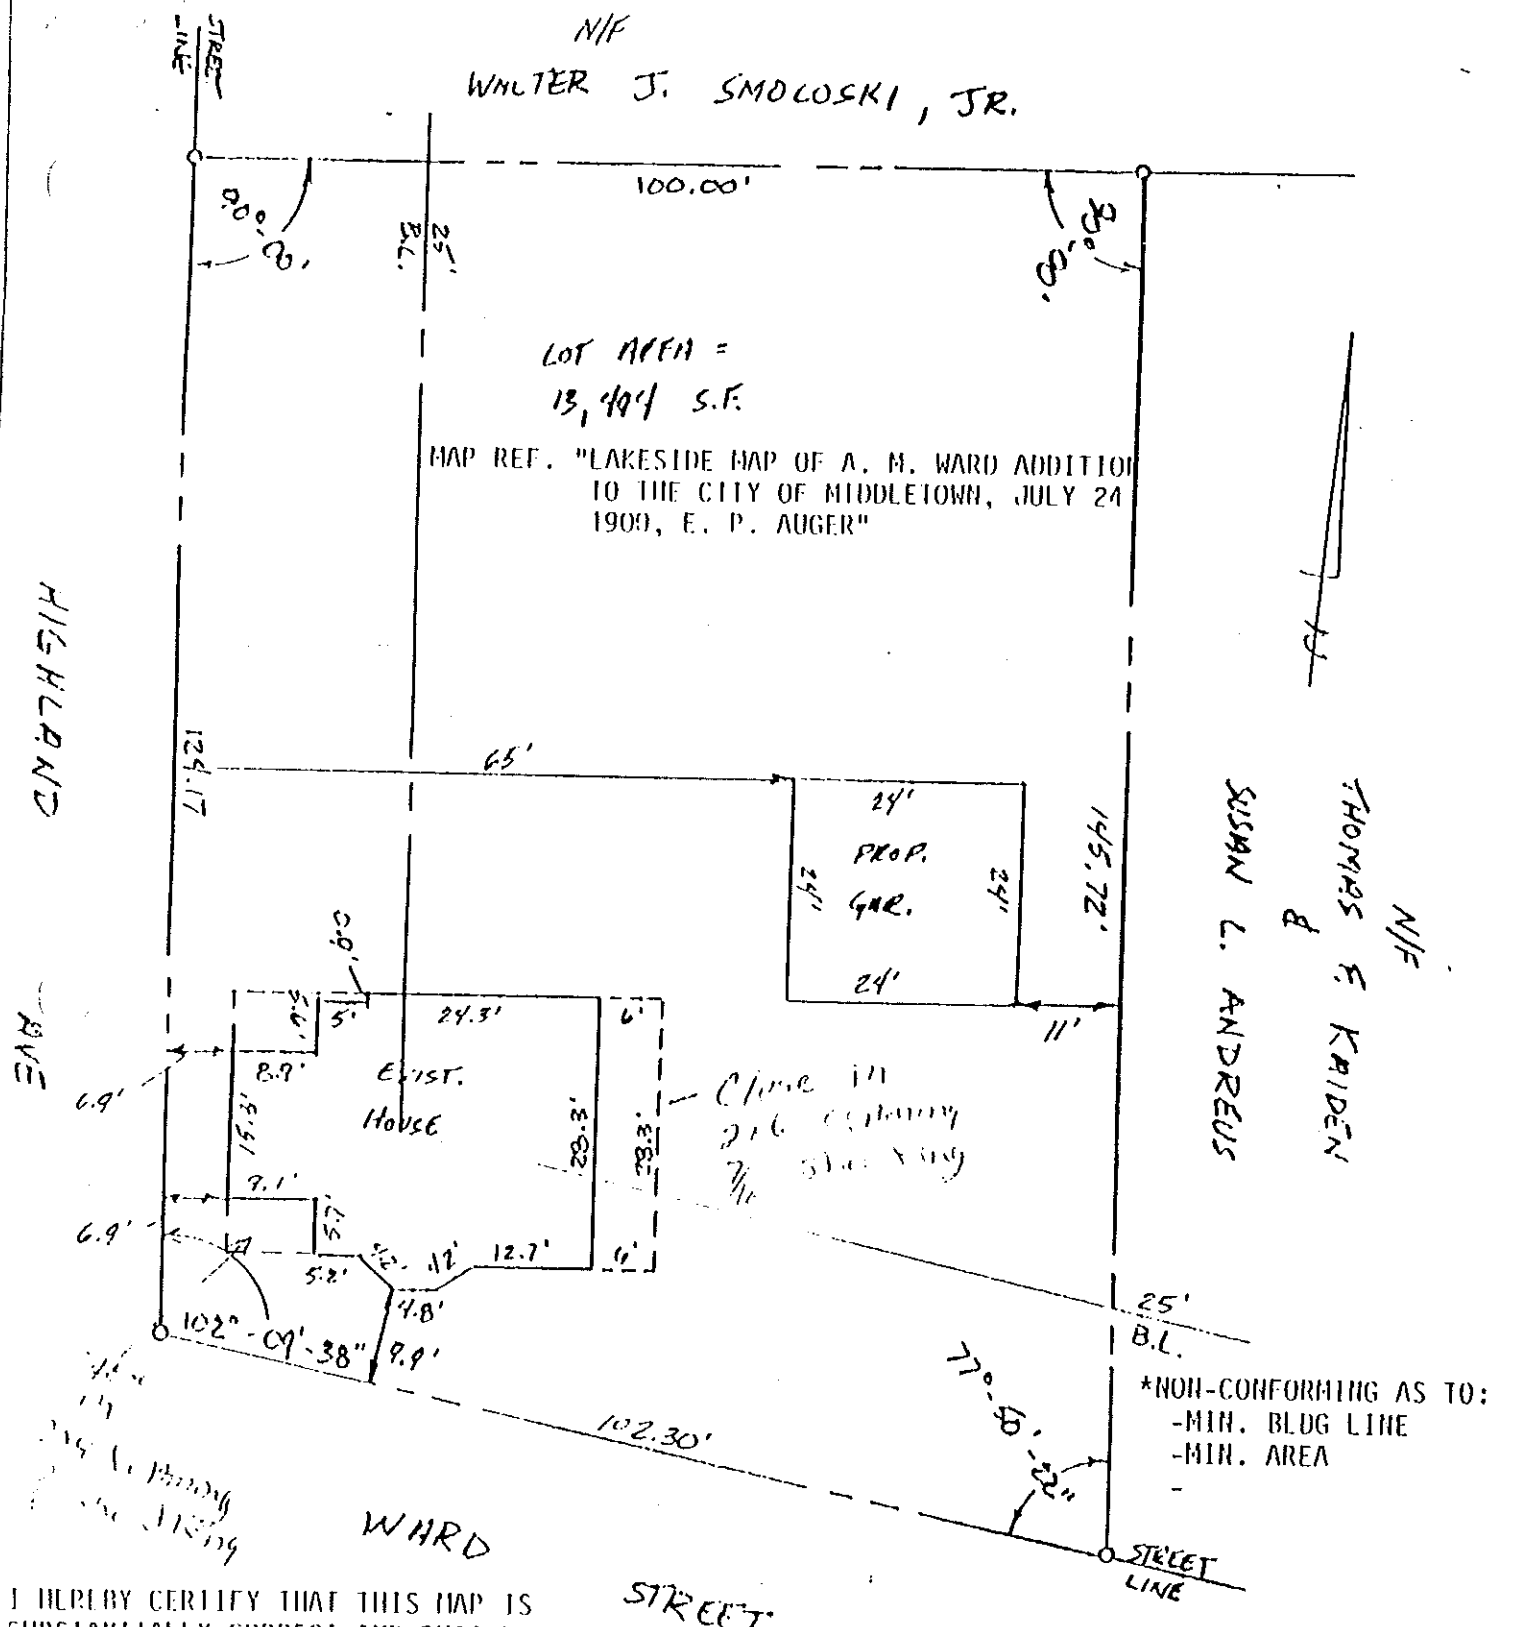 N/F
WALTER J. SMOLOSKI, JR.
STREET
LINE
100.00'
25'
B.L.
LOT AREA =
S.F.
MAP REF. "LAKESIDE MAP OF A. M. WARD ADDITION
TO THE CITY OF MIDDLETOWN, JULY 24
1909, E. P. AUGER"
N
HIGHLAND
AVE
124.17
65'
24'
PROP.
GAR.
24'
24'
24'
11'
145.72'
N/F
THOMAS F. KAIDEN
&
SUSAN L. ANDREUS
0.9'
5.6'
5'
24.3'
6'
8.9'
EXIST.
HOUSE
6.9'
15.3'
28.3'
28.3'
9.1'
5.7'
6.9'
5.2'
12.7'
6'
4.8'
9.9'
102°-09'-38"
102.30'
77°-50'-22"
25'
B.L.
*NON-CONFORMING AS TO:
-MIN. BLDG LINE
-MIN. AREA
-
STREET
LINE
WARD
STREET
I HEREBY CERTIFY THAT THIS MAP IS
SUBSTANTIALLY CORRECT AND